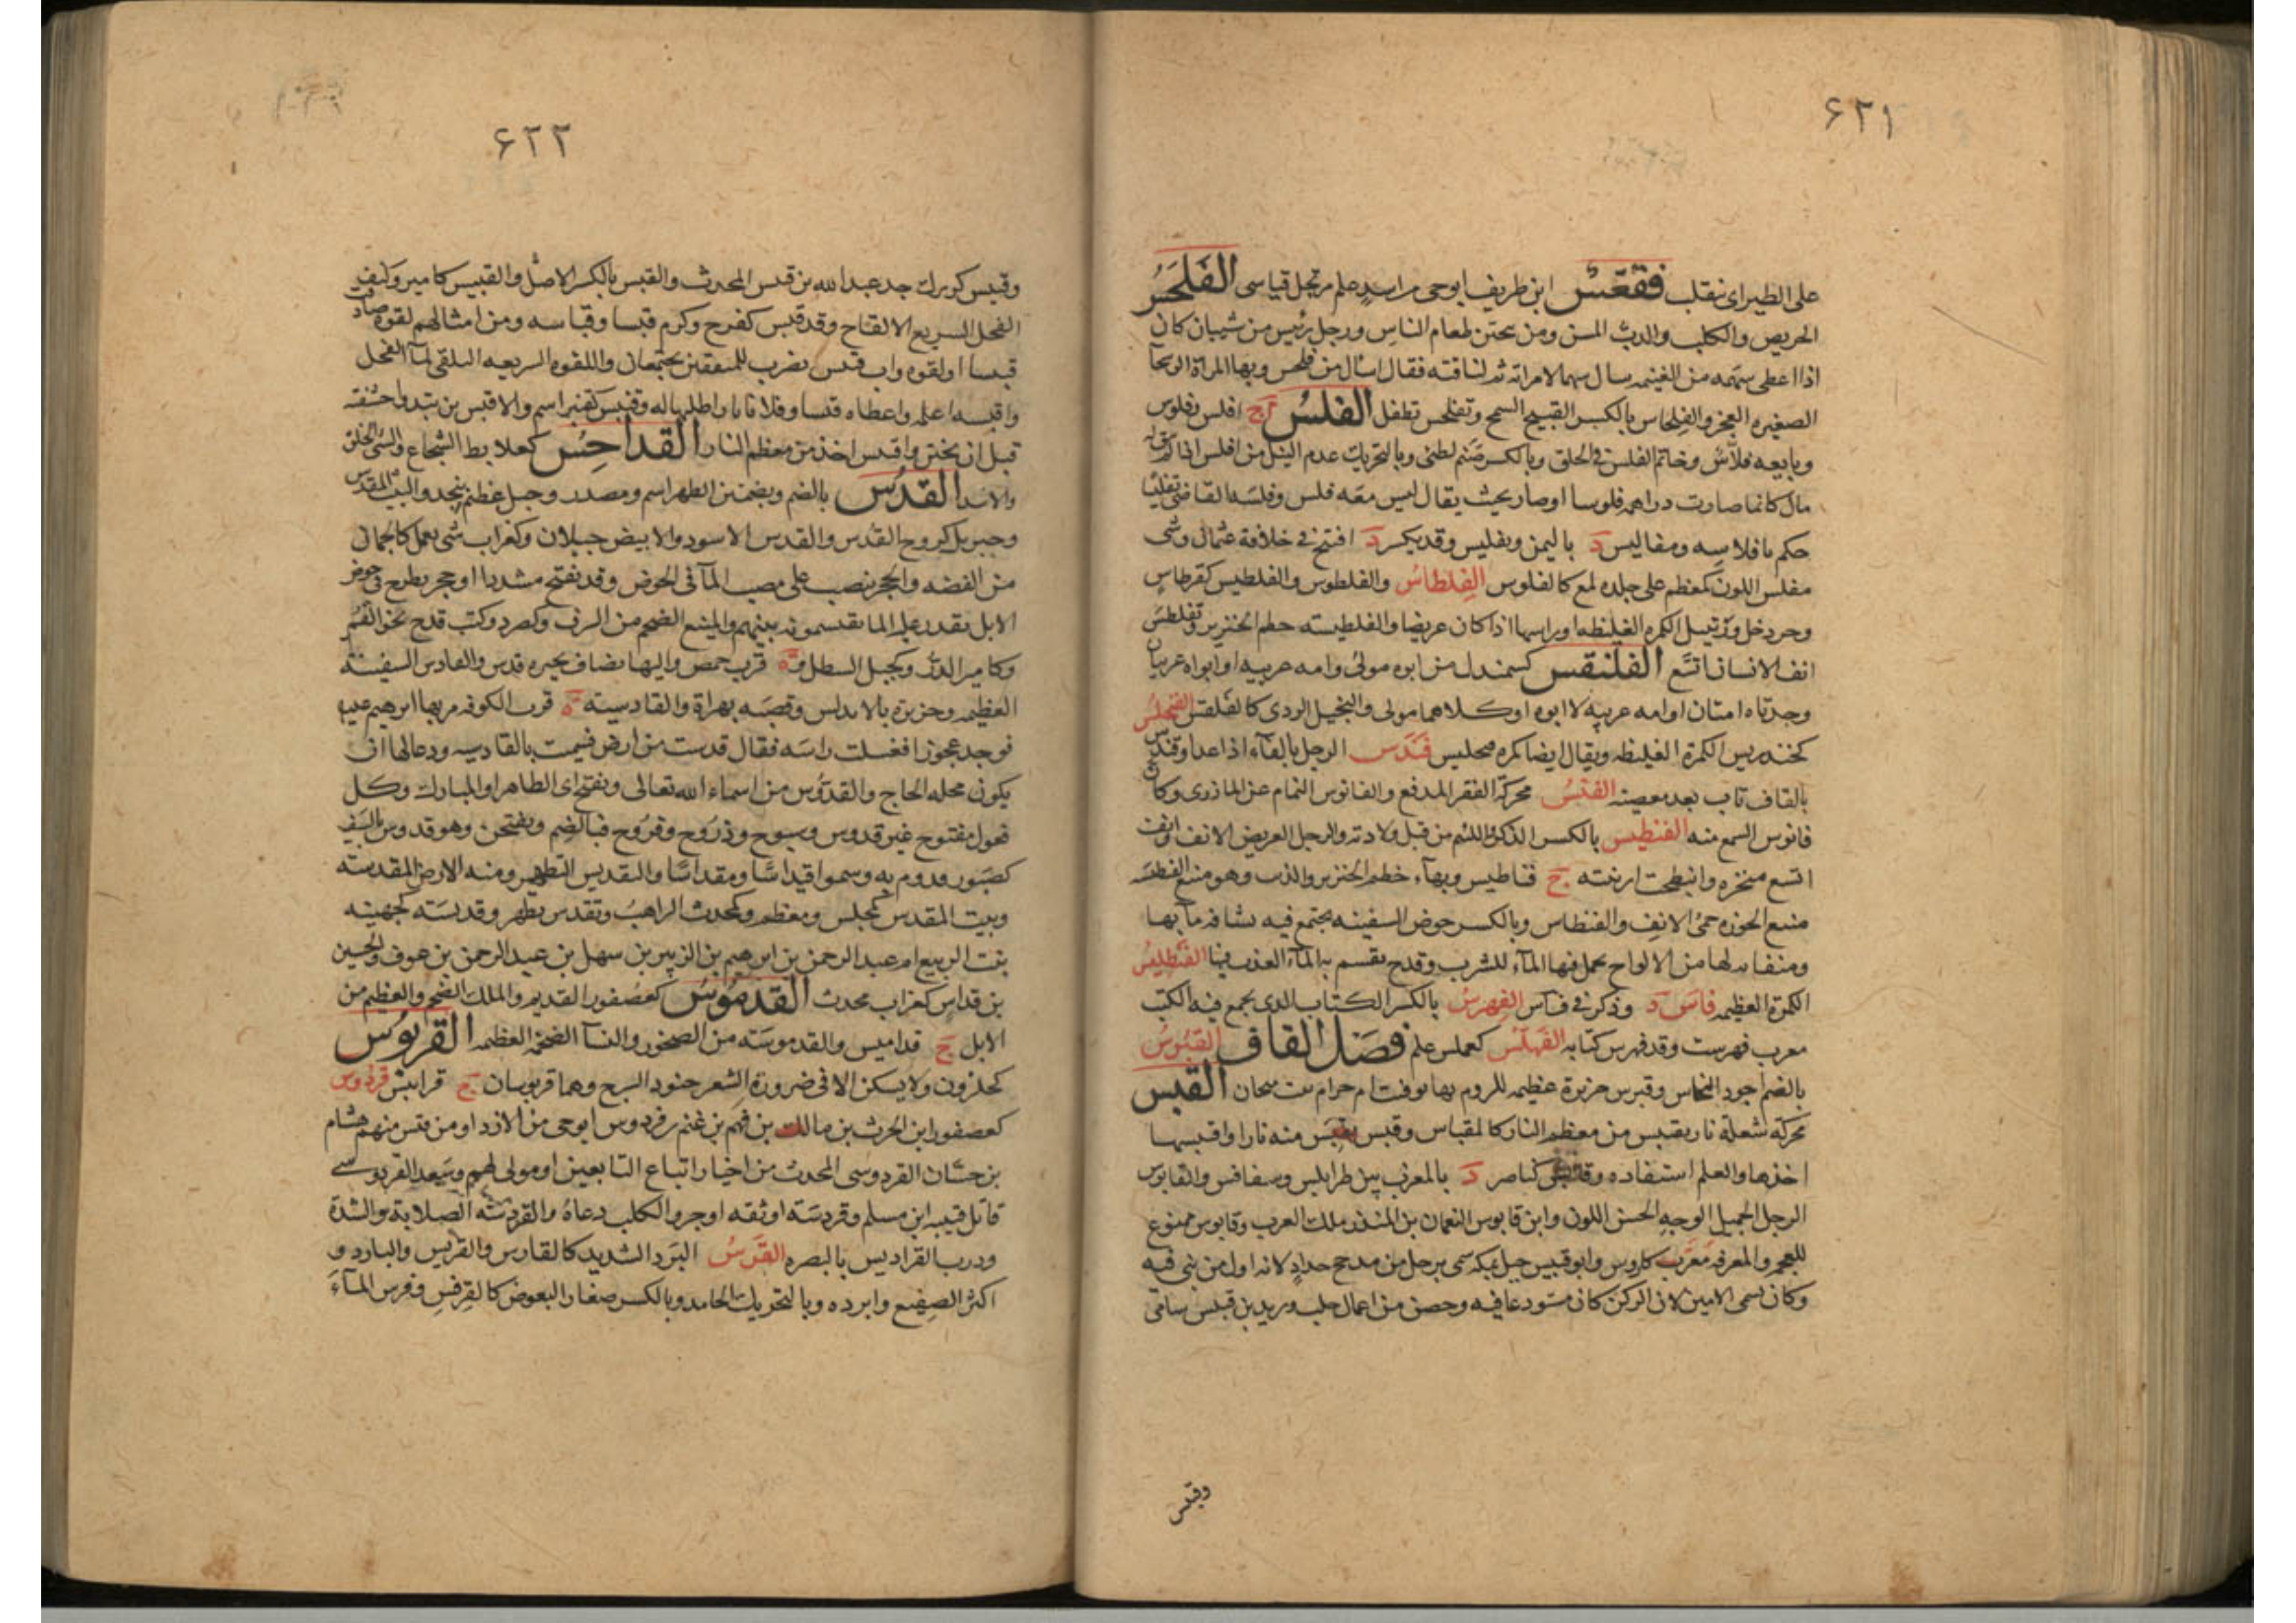 ۶۲۱
على الطير اى نقلب فقعس ابن طريف ابوحى من اسد علم مرتجل قياسى الفلحس
الحريص والكلب والدب المسن ومن يتحين لطعام الناس ورجل رئيس من شيبان كان
اذا اعطى سهمه من الغنيمه سال سهما لامراته ثم لناقته فقال اسال من فلحس وبها المراة الرسحا
الصغيره العجز والفلحاس بالكسر القبيح السمج وتفلحس تطفل الفلس ج افلس وفلوس
وبايعه فلاس وخاتم الفلس فى الحلق وبالكسر صنم لطئ وبالتحريك عدم النيل من افلس اذا لم يبق له
مال كانما صارت دراهمه فلوسا او صار بحيث يقال ليس معه فلس وفلسه القاضى تفليسا
حكم بافلاسه ومفاليس د باليمن وتفليس وقد يكسر د افتتح فى خلافة عثمان وشى
مفلس اللون كمعظم على جلده لمع كالفلوس الفلطاس والفلطوس والفلطيس كقرطاس
وجردحل وزنبيل الكمره الغليظه او راسها اذا كان عريضا والفلطيسه خطم الخنزير وتفلطس
انف الانسان اتسع الفلنقس كسمندل من ابوه مولى وامه عربيه او ابواه عربيان
وجدتاه امتان او امه عربيه لا ابوه او كلاهما مولى والبخيل الردى كالفلقس الفنجليس
كخندريس الكمرة الغليظه ويقال ايضا كمره فنجليس فندس الرجل بالفاء اذا عدا وقندس
بالقاف تاب بعد معصيته الفنس محركة الفقر المدقع والفانوس النمام عن المازرى وكان
فانوس الشمع منه الفنطيس بالكسر الذكر واللئيم من قبل ولادته والرجل العريض الانف وانف
اتسع منخره وانبطحت ارنبته ج فناطيس وبهاء خطم الخنزير والذئب وهو منيع الفنطسه
منيع الحوزه حمى الانف والفنطاس وبالكسر حوض السفينه يجتمع فيه نشافة مآئها
ومنفايه لها من الالواح يحمل فيها المآء للشرب وقدح يقسم به المآء العذب فيها الفنطليس
الكمرة العظيمه فاس د وذكر فى فأس الفهرس بالكسر الكتاب الذى يجمع فيه الكتب
معرب فهرست وقد فهرس كتابه الفهلس كعملس علم فصل القاف القبرس
بالضم اجود النحاس وقبرس جزيرة عظيمه للروم بها توفيت ام حرام بنت ملحان القبس
محركة شعلة نار يقتبس من معظم النار كالمقباس وقبس يقبس منه نارا واقتبسها
اخذها والعلم استفاده وقابس كناصر د بالمغرب بين طرابلس وسفاقس والقابوس
الرجل الجميل الوجه الحسن اللون وابن قابوس النعمان بن المنذر ملك العرب وقابوس ممنوع
للعجمه والمعرفه معرب كاووس وابو قبيس جبل بمكه سمى برجل من مذحج حداد لانه اول من بنى فيه
وكان يسمى الامين لان الركن كان مستودعا فيه وحصن من اعمال حلب ويزيد بن قبيس شامى
وقبيس
۶۲۲
وقبيس كزبير جد عبدالله بن قبيس المحدث والقبس بالكسر الاصل والقبيس كامير وكتف
الفحل السريع الالقاح وقد قبس كفرح وكرم قبسا وقباسه ومن امثالهم لقوه صادفت
قبيسا او لقوه واب قبيس يضرب للمتفقين يجتمعان واللقوه السريعه التلقى لمآ الفحل
واقبسه اعلمه واعطاه قبسا وفلانا نارا طلبها له وقنبس كقنبر اسم والاقبس من تبدو حشفته
قبل ان يختن واقتبس اخذ من معظم النار القداحس كعلابط الشجاع والسئ الخلق
والاسد القدس بالضم وبضمتين الطهر اسم ومصدر وجبل عظيم بنجد والبيت المقدس
وجبريل كروح القدس والقدس الاسود والابيض جبلان وكغراب شى يعمل كالجمان
من الفضه والحجر ينصب على مصب المآ فى الحوض وقد يفتح مشددا او حجر يطرح فى حوض
الابل يقدر عليه الما يقتسمونه بينهم والمنيع الضخم من الشرف وكصرد وكتب قدح نحو الغمر
وكامير الدر وكجبل السطل وة قرب حمص واليها يضاف بحيره قدس والقادس السفينة
العظيمه وجزيرة بالاندلس وقصبه بهراة والقادسيه ة قرب الكوفه مر بها ابرهيم عليه
فوجد عجوزا فغسلت راسه فقال قدست من ارض فسميت بالقادسيه ودعا لها ان
يكون محله الحاج والقدوس من اسماء الله تعالى ويفتح اى الطاهر او المبارك وكل
فعول مفتوح غير قدوس وسبوح وذروح وفروح فبالضم ويفتحن وهو قدوس بالسيف
كصبور قدوم به وسموا قيداسا ومقداسا والتقديس التطهير ومنه الارض المقدسه
وبيت المقدس كمجلس ومعظم وكمحدث الراهب وتقدس تطهر وقديسه كجهينه
بنت الربيع ام عبدالرحمن بن ابرهيم بن الزبير بن سهل بن عبدالرحمن بن عوف والحسين
بن قداس كغراب محدث القدموس كعصفور القديم والملك الضخم والعظيم من
الابل ج قداميس والقدموسه من الصخور والنسآ الضخمة العظيمه القربوس
كحلزون ولا يسكن الا فى ضرورة الشعر حنو السرج وهما قربوسان ج قرابيس قردوس
كعصفور ابن الحرث بن مالك بن فهم بن غنم بن قردوس ابوحى من الازد او من قيس منهم هشام
بن حسان القردوسى المحدث من اخيار اتباع التابعين او مولى لهم وسعد القردوسى
قاتل قتيبه ابن مسلم وقردسه اوثقه او جرو الكلب دعاه والقردسه الصلابة والشدة
ودرب القراديس بالبصره القرس البرد الشديد كالقارس والقريس والبارد و
اكثر الصقيع وابرده وبالتحريك الجامد وبالكسر صغار البعوض كالقرقس وقرس المآء